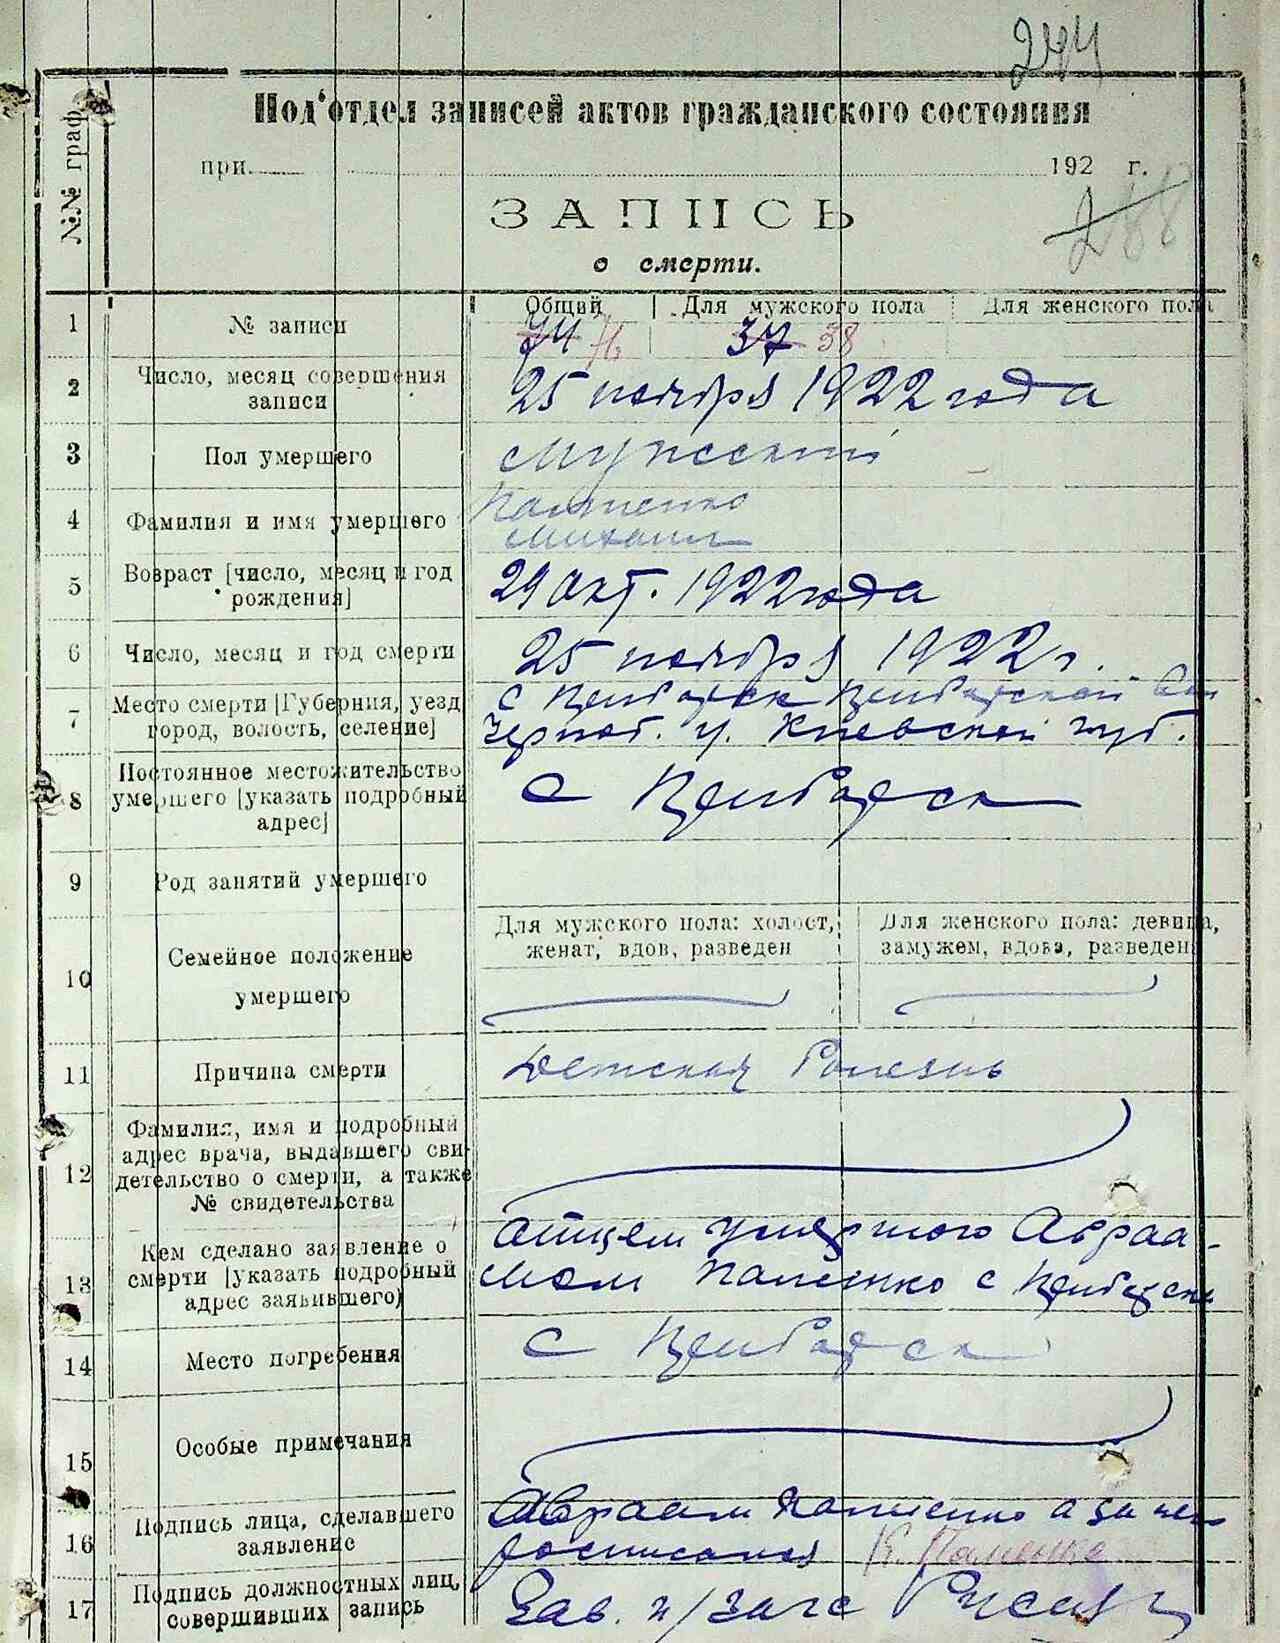 244
Под'отдел записей актов гражданского состояния
№№ граф
при 192 г.
288
ЗАПИСЬ
о смерти.
Общий Для мужского пола Для женского пола
1 № записи 74 76 37 38
2 Число, месяц совершения записи
25 ноября 1922 года
3 Пол умершего Мужской
4 Фамилия и имя умершего
Паляненко
Михаил
5 Возраст [число, месяц и год рождения]
29 окт. 1922 года
6 Число, месяц и год смерти 25 ноября 1922 г.
7 Место смерти [Губерния, уезд, город, волость, селение]
с
Черноб. у. Киевской губ.
8 Постоянное местожительство умершего [указать подробный адрес]
с
9 Род занятий умершего
10 Семейное положение умершего
Для мужского пола: холост, женат, вдов, разведен
Для женского пола: девица, замужем, вдова, разведена
11 Причина смерти Детская болезнь
12 Фамилия, имя и подробный адрес врача, выдавшего свидетельство о смерти, а также № свидетельства
13 Кем сделано заявление о смерти [указать подробный адрес заявившего]
отцем умершого Авраа-
мом с
14 Место погребения с
15 Особые примечания
16 Подпись лица, сделавшего заявление
Авраам а за него
росписался К.
17 Подпись должностных лиц, совершивших запись
Зав. п/загс